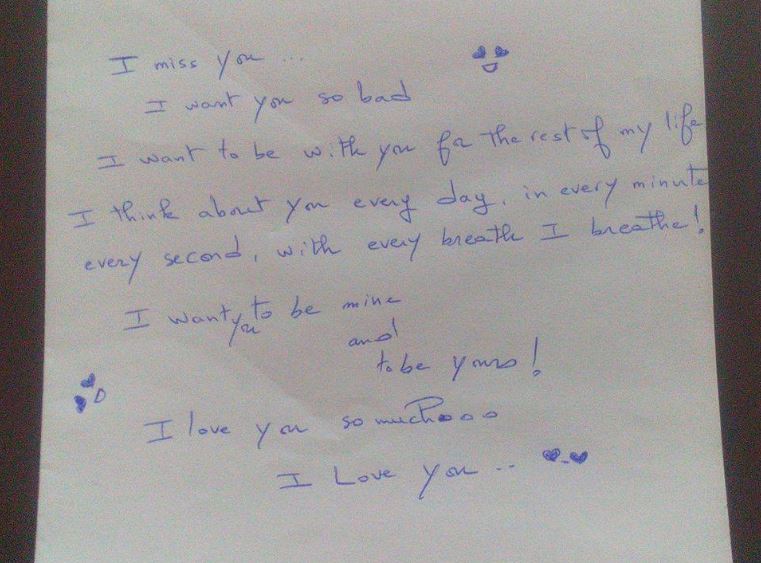 I miss you ...
I want you so bad
I want to be with you for the rest of my life
I think about you every day, in every minute
every second, with every breath I breathe!
I want you to be mine
and
to be yours!
I love you so muchooo
I Love you ..